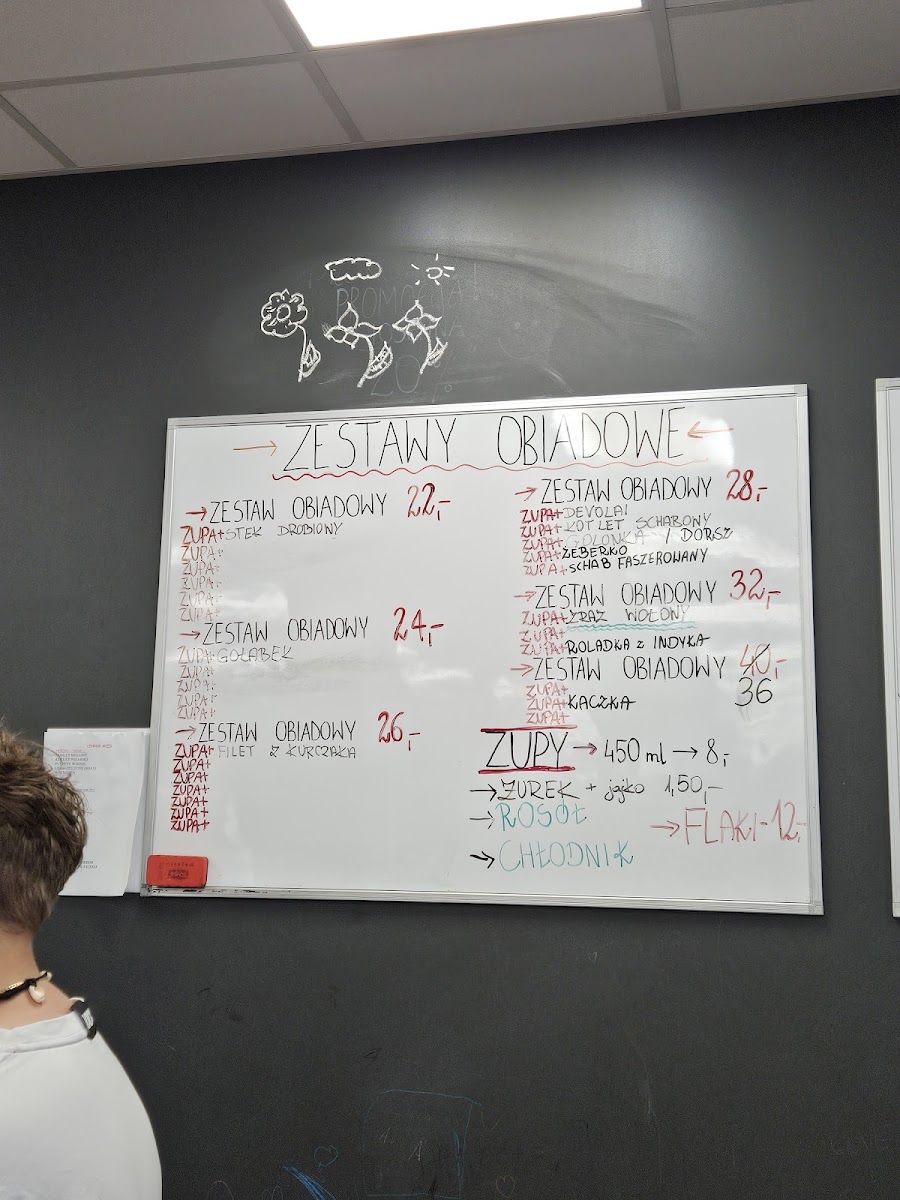 PROMOCJA
ZESTAWY OBIADOWE
ZESTAW OBIADOWY 22,-
ZUPA+ STEK DROBIONY
ZUPA+
ZUPA+
ZUPA+
ZUPA+
ZUPA+
ZESTAW OBIADOWY 24,-
ZUPA+ GOŁĄBEK
ZUPA+
ZUPA+
ZUPA+
ZUPA+
ZESTAW OBIADOWY 26,-
ZUPA+ FILET Z KURCZAKA
ZUPA+
ZUPA+
ZUPA+
ZUPA+
ZUPA+
ZUPA+
ZESTAW OBIADOWY 28,-
ZUPA+ DEVOLAI
ZUPA+ KOTLET SCHABOWY
ZUPA+ GOLONKA / DORSZ
ZUPA+ ŻEBERKO
ZUPA+ SCHAB FASZEROWANY
ZESTAW OBIADOWY 32,-
ZUPA+ ZRAZ WOŁOWY
ZUPA+
ZUPA+ ROLADKA Z INDYKA
ZESTAW OBIADOWY 40,-
36
ZUPA+
ZUPA+ KACZKA
ZUPA+
ZUPY → 450 ml → 8,-
→ ŻUREK + jajko 1,50,-
→ ROSÓŁ
→ FLAKI-12,
→ CHŁODNIK